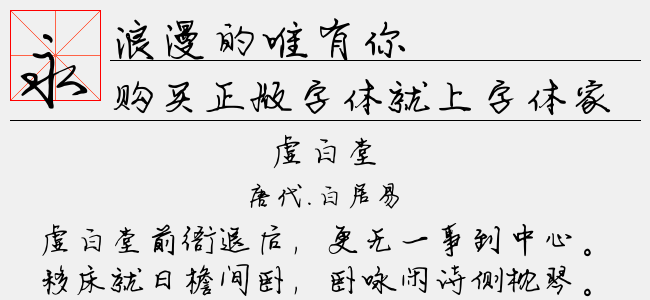 永
浪漫的唯有你
购买正版字体就上字体家
虚白堂
唐代.白居易
虚白堂前衙退后，更无一事到中心。
移床就日檐间卧，卧咏闲诗侧枕琴。